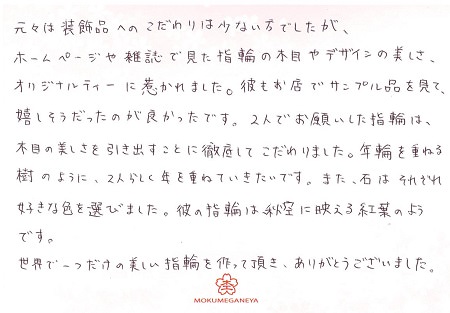 元々は装飾品へのこだわりは少ない方でしたが、
ホームページや雑誌で見た指輪の木目やデザインの美しさ、
オリジナルティーに惹かれました。彼もお店でサンプル品を見て、
嬉しそうだったのが良かったです。2人でお願いした指輪は、
木目の美しさを引き出すことに徹底してこだわりました。年輪を重ねる
樹のように、2人らしく年を重ねていきたいです。また、石はそれぞれ
好きな色を選びました。彼の指輪は秋空に映える紅葉のよう
です。
世界で一つだけの美しい指輪を作って頂き、ありがとうございました。
MOKUMEGANEYA